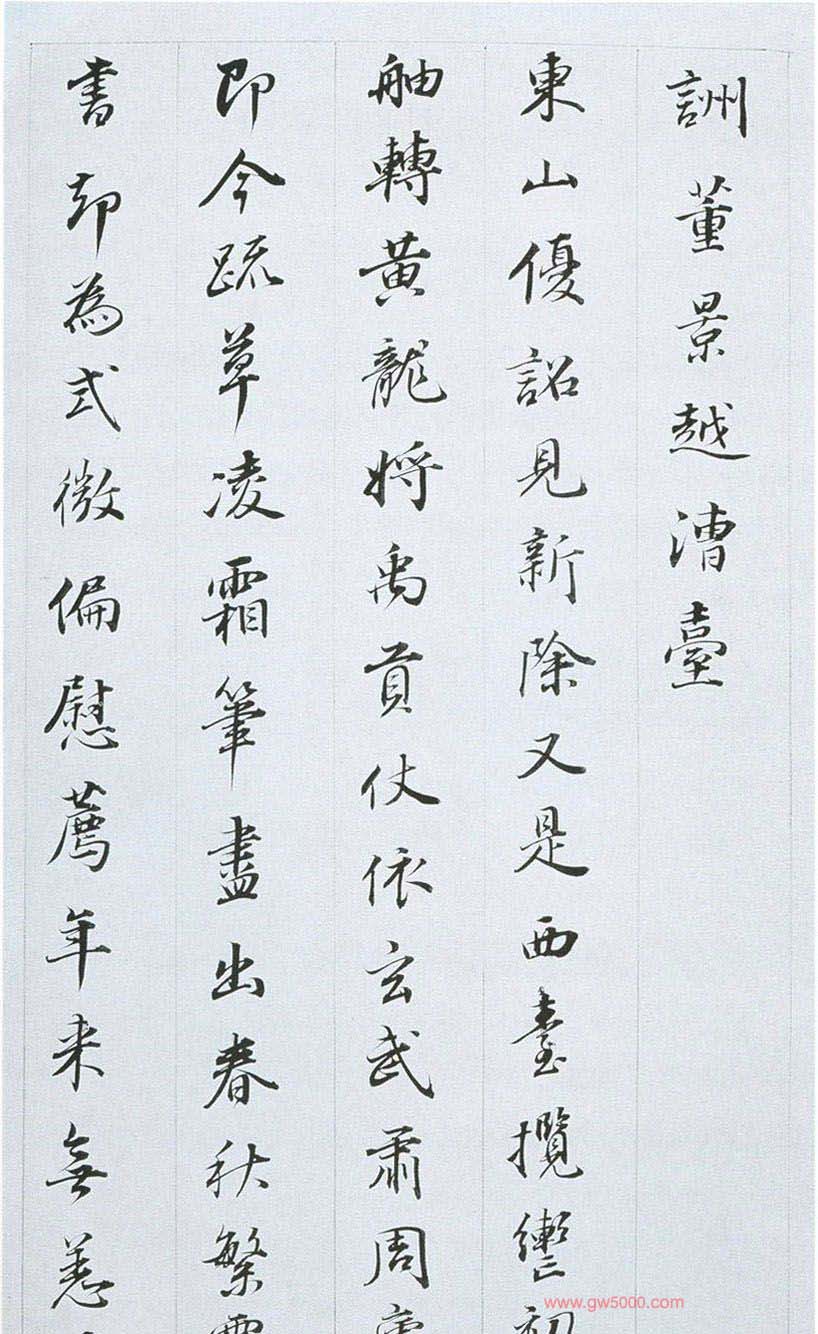 詶董景越漕臺
東山優詔見新除又是西臺攬轡初
舳轉黃龍將禹貢仗依玄武肅周
即今疏草凌霜筆盡出春秋繁露
書却為式微偏慰薦年來無恙
www.gw5000.com